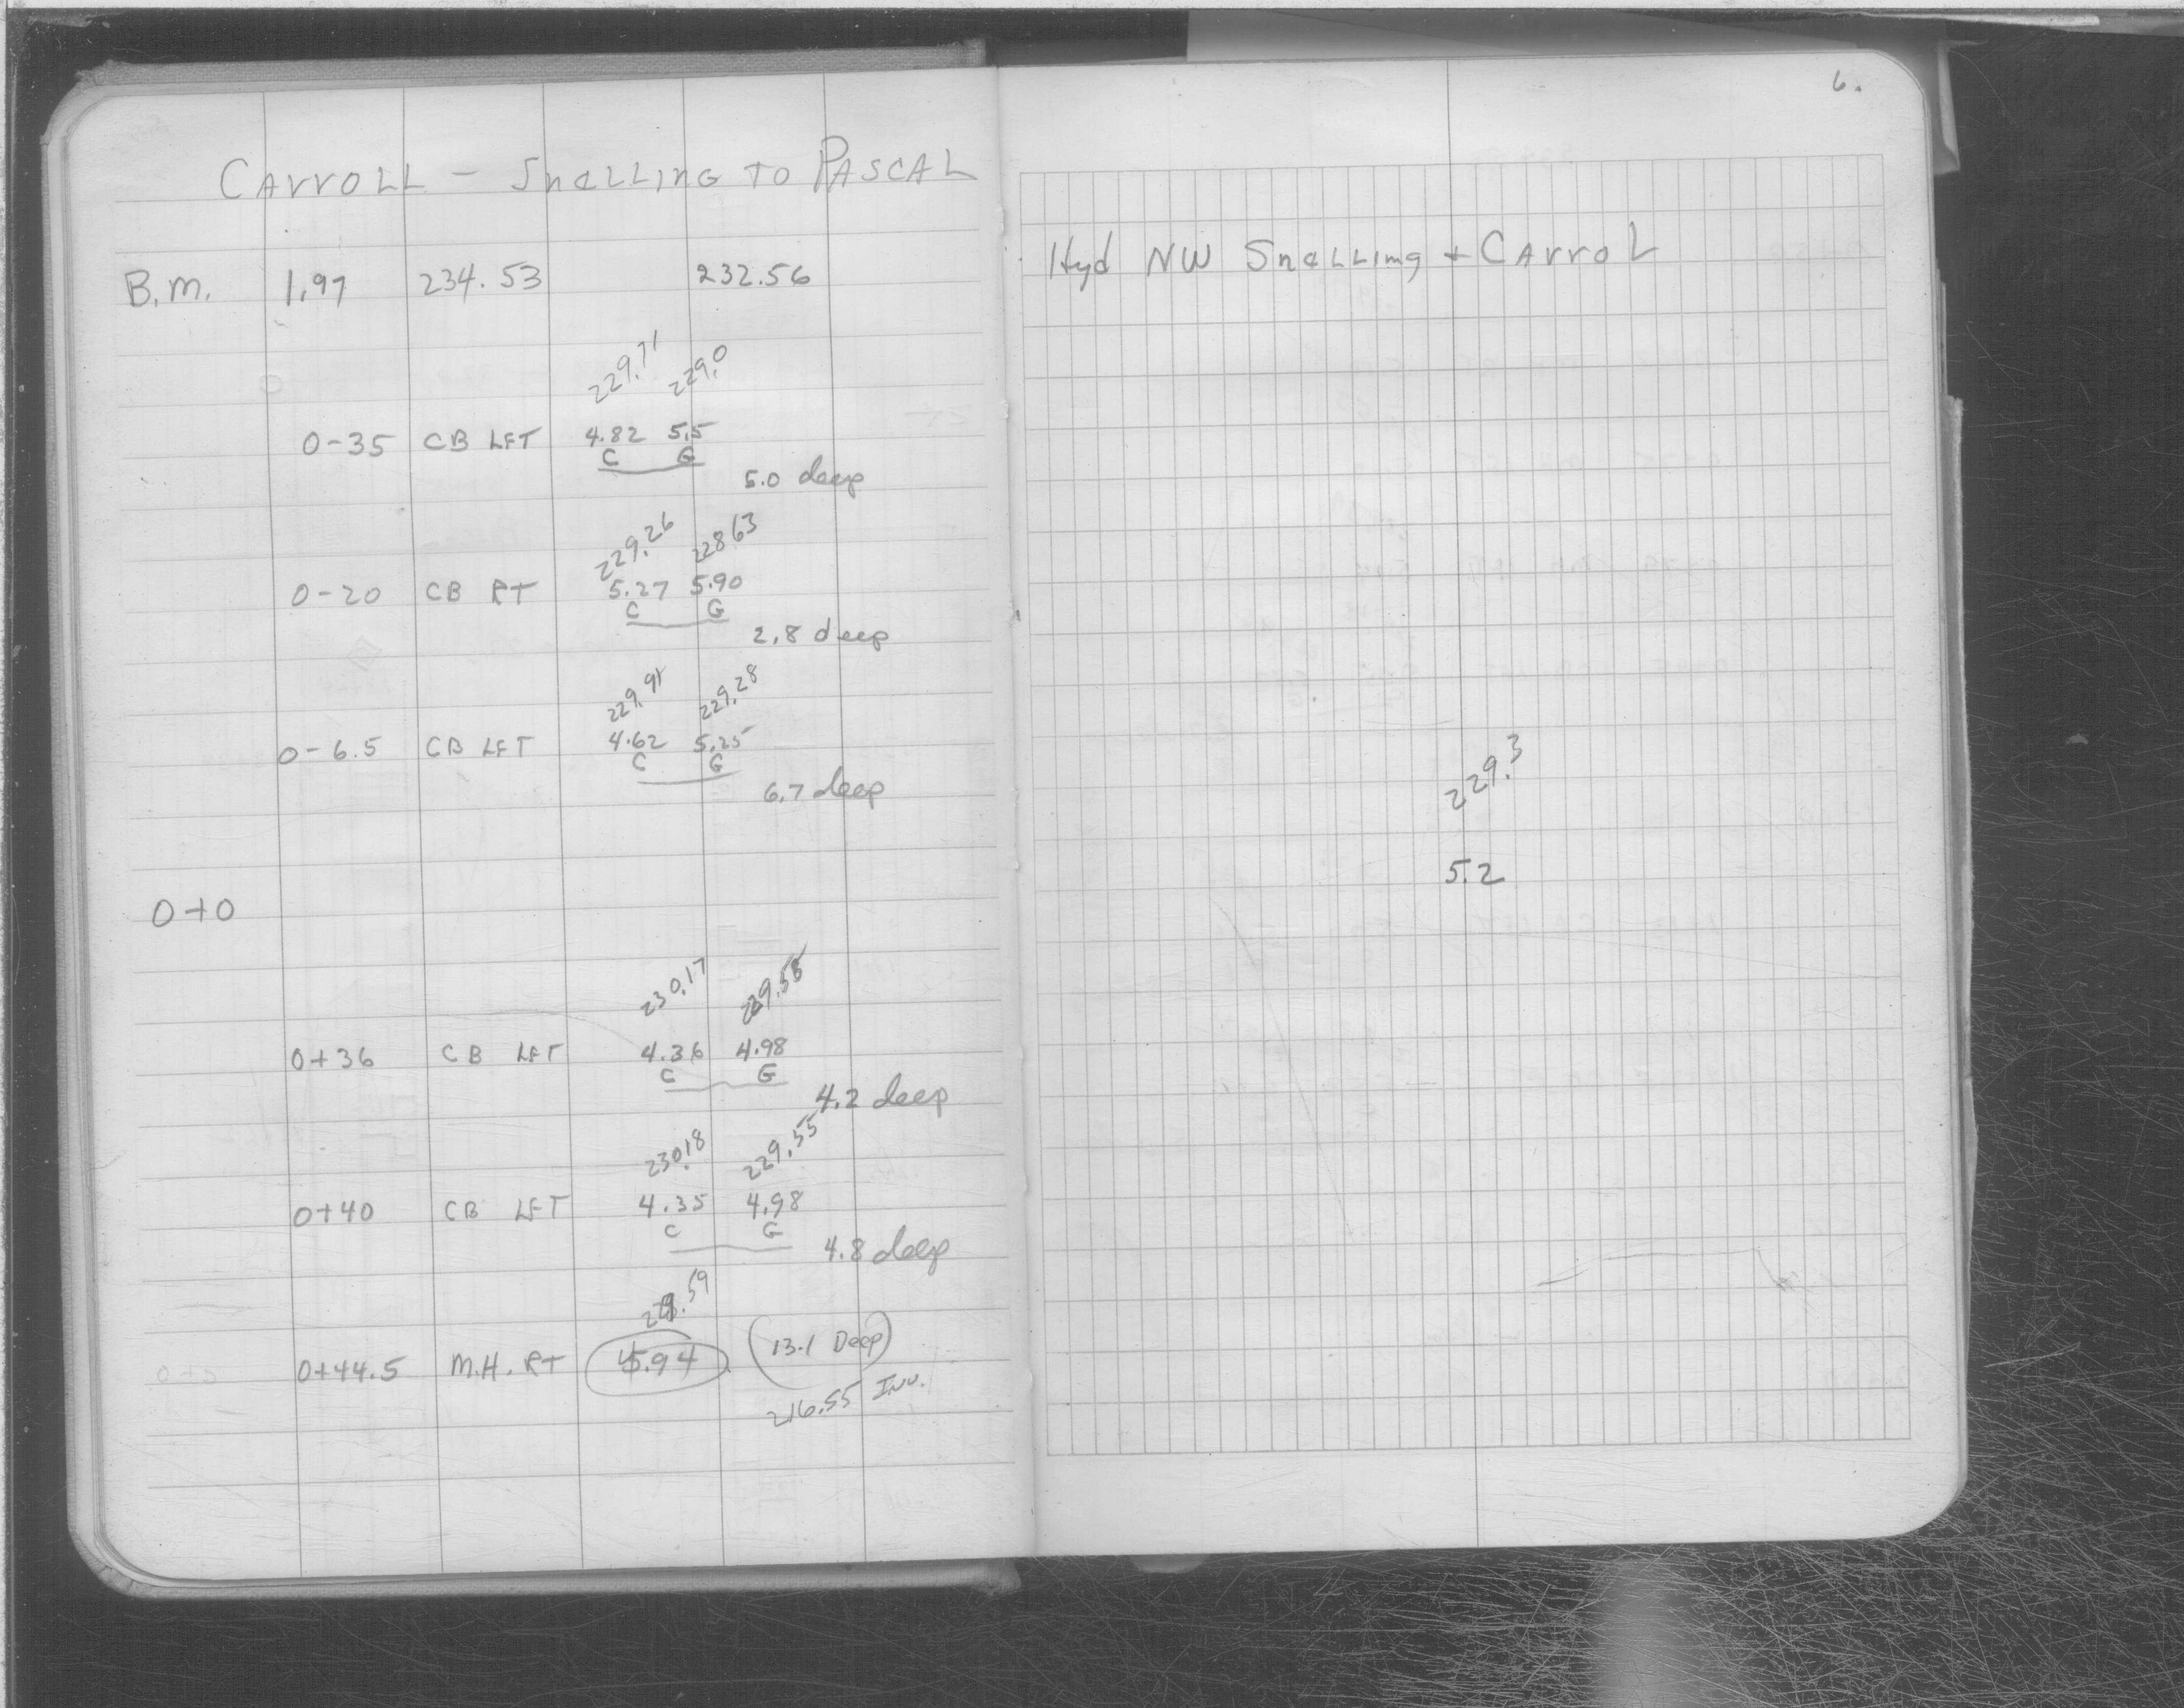 6.
CARROLL - SnELLInG TO PASCAL
B.M. 1.97 234.53 232.56 Hyd NW SnELLing + CArroL
229.71 229.0
0-35 CB LFT 4.82 5.5
C G
5.0 deep
229.26 228.63
0-20 CB RT 5.27 5.90
C G
2.8 deep
229.91 229.28
0-6.5 CB LFT 4.62 5.25
C G
6.7 deep
229.3
0+0 5.2
230.17 229.55
0+36 CB LFT 4.36 4.98
C G
4.2 deep
230.18 229.55
0+40 CB LFT 4.35 4.98
C G
4.8 deep
0+44.5 M.H. RT (13.1 Deep)
216.55 Inv.